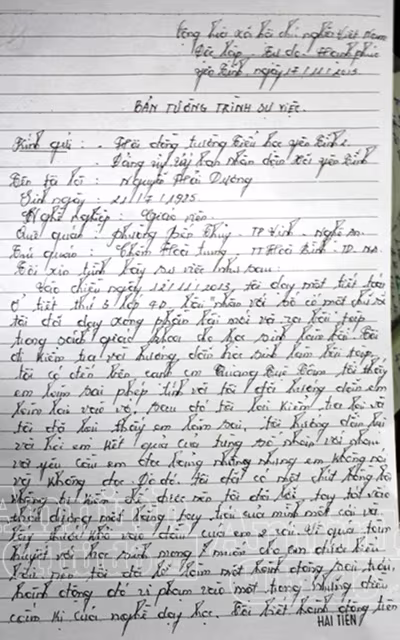 Cộng hòa xã hội chủ nghĩa Việt Nam
Độc lập, Tự do, Hạnh phúc
Yên Định, ngày 17/12/2013
BẢN TƯỜNG TRÌNH SỰ VIỆC.
Kính gửi: - Hội đồng trường tiểu học yên Định 1.
- Đảng ủy, ủy ban nhân dân xã yên Định
Tên tôi là: Nguyễn Hải Dương
Sinh ngày: 21/7/1975.
Nghề nghiệp: Giáo viên.
Quê quán: phường Bến Thủy, TP Vinh, Nghệ An.
Trú quán:
Tôi xin trình bày sự việc như sau:
Vào chiều ngày 12/12/2013, tôi dạy một tiết toán
ở tiết thứ 3 lớp 4D, bài "nhân với số có một chữ số
tôi đã dạy xong phần bài mới và ra bài tập
trong sách giáo khoa cho học sinh làm bài. Tôi
đi kiểm tra và hướng dẫn học sinh làm bài tập,
tôi có đến bên cạnh em Quang Quế Lâm tôi thấy
em làm sai phép tính và tôi đã hướng dẫn em
làm lại vào vở, sau đó tôi lại kiểm tra lại và
tôi đã lại thấy em làm sai, tôi hướng dẫn lại
và hỏi em kết quả của từng số nhân với nhau
và yêu cầu em đọc bảng nhưng em không nói
và không đọc. Do đó, tôi đã có một chút nóng
không kiềm chế được nên tôi đã lấy tay
một bằng tay trái của mình một cái và
lấy thước vào đầu của em 2 cái. Vì quá tâm
huyết với học sinh mong muốn cho em được hiểu
bài nên tôi đã làm một hành động sai trái,
hành động đó vi phạm vào một trong những điều
cấm kị của nghề dạy học. Tôi biết hành động trên
HẢI TIẾN